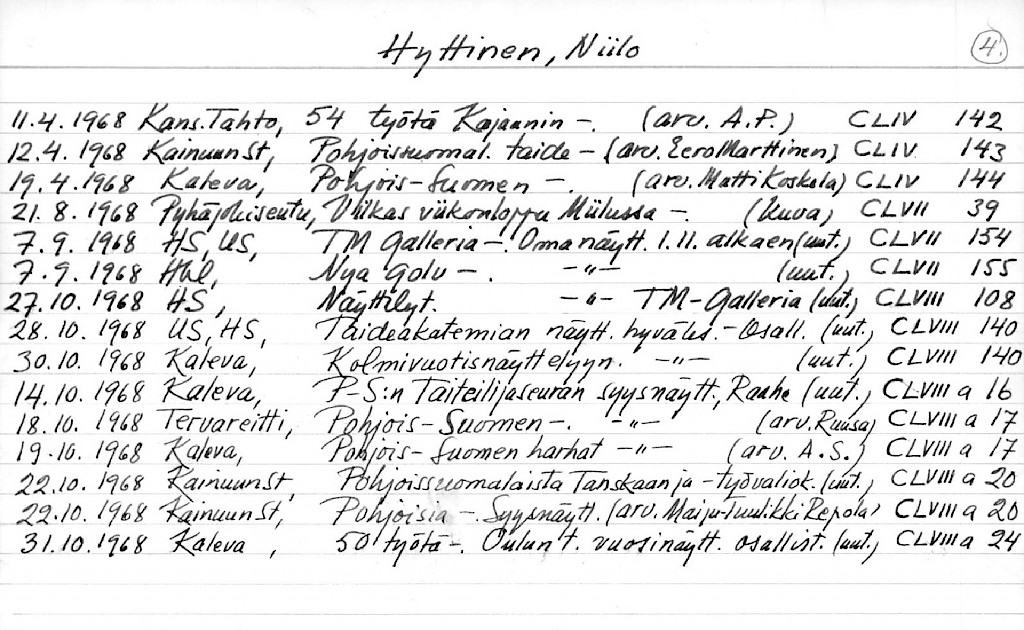 Hyttinen, Niilo 4.
11.4.1968 Kans.Tahto, 54 työtä Kajaanin -. (arv. A.P.) CLIV 142
12.4.1968 KainuunSt, Pohjoissuomal. taide - (arv. Eero Marttinen) CLIV 143
19.4.1968 Kaleva, Pohjois-Suomen -. (arv. Matti Koskela) CLIV 144
21.8.1968 Pyhäjokiseutu, Vilkas viikonloppu Miilussa -. (kuva) CLVII 39
7.9.1968 HS, US, TM Galleria -. Oma näytt. 1.11. alkaen (uut.) CLVII 154
7.9.1968 Hbl, Nya Golv -. -"- (uut.) CLVII 155
27.10.1968 HS, Näyttelyt. -"- TM-Galleria (uut.) CLVIII 108
28.10.1968 US, HS, Taideakatemian näytt. hyväks. - Osall. (uut.) CLVIII 140
30.10.1968 Kaleva, Kolmivuotisnäyttelyyn. -"- (uut.) CLVIII 140
14.10.1968 Kaleva, P-S:n Taiteilijaseuran syysnäytt., Raahe (uut.) CLVIII a 16
18.10.1968 Tervareitti, Pohjois-Suomen -. -"- (arv. Ruusa) CLVIII a 17
19.10.1968 Kaleva, Pohjois-Suomen harhat -"- (arv. A.S.) CLVIII a 17
22.10.1968 KainuunSt, Pohjoissuomalaista Tanskaan ja - työvaliok. (uut.) CLVIII a 20
22.10.1968 KainuunSt, Pohjoisia -. Syysnäytt. (arv. Maiju-Tuulikki Repola) CLVIII a 20
31.10.1968 Kaleva, 50 työtä -. Oulun t. vuosinäytt. osallist. (uut.) CLVIII a 24